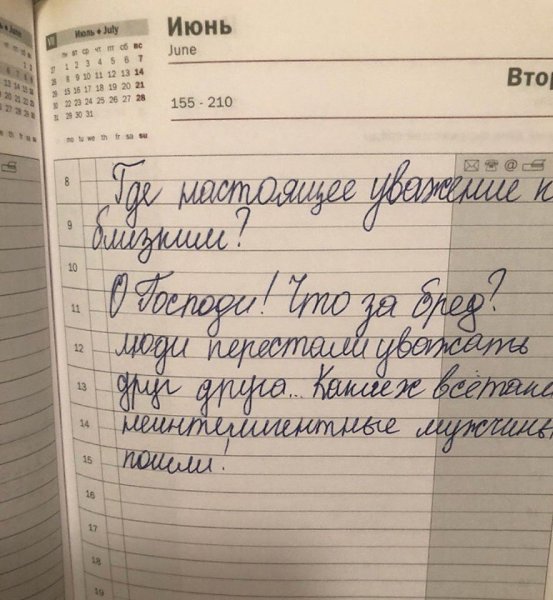 Июль • July
Июнь
June
пн вт ср чт пт сб вс
27 1 2 3 4 5 6 7
28 8 9 10 11 12 13 14
29 15 16 17 18 19 20 21
30 22 23 24 25 26 27 28
31 29 30 31
mo tu we th fr sa su
Втор
155 - 210
8 Где настоящее уважение к
9 близким?
10
11 О Господи! Что за бред?
12 люди перестали уважать
13 друг друга... Какие ж всётаки
14 неинтелигентные мужчины
15 пошли!
16
17
18
19